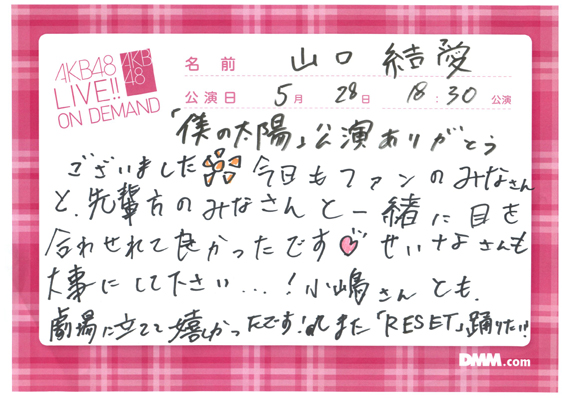 AKB48
LIVE!!
ON DEMAND
AKB
48
名前 山口 結愛
公演日 5月 28日 18:30 公演
「僕の太陽」公演ありがとう
ございました 今日もファンのみなさん
と、先輩方のみなさんと一緒に目を
合わせれて良かったです せいなさんも
大事にして下さい...!小嶋さんとも、
劇場に立てて嬉しかったです! また「RESET」踊りたい!!
DMM.com